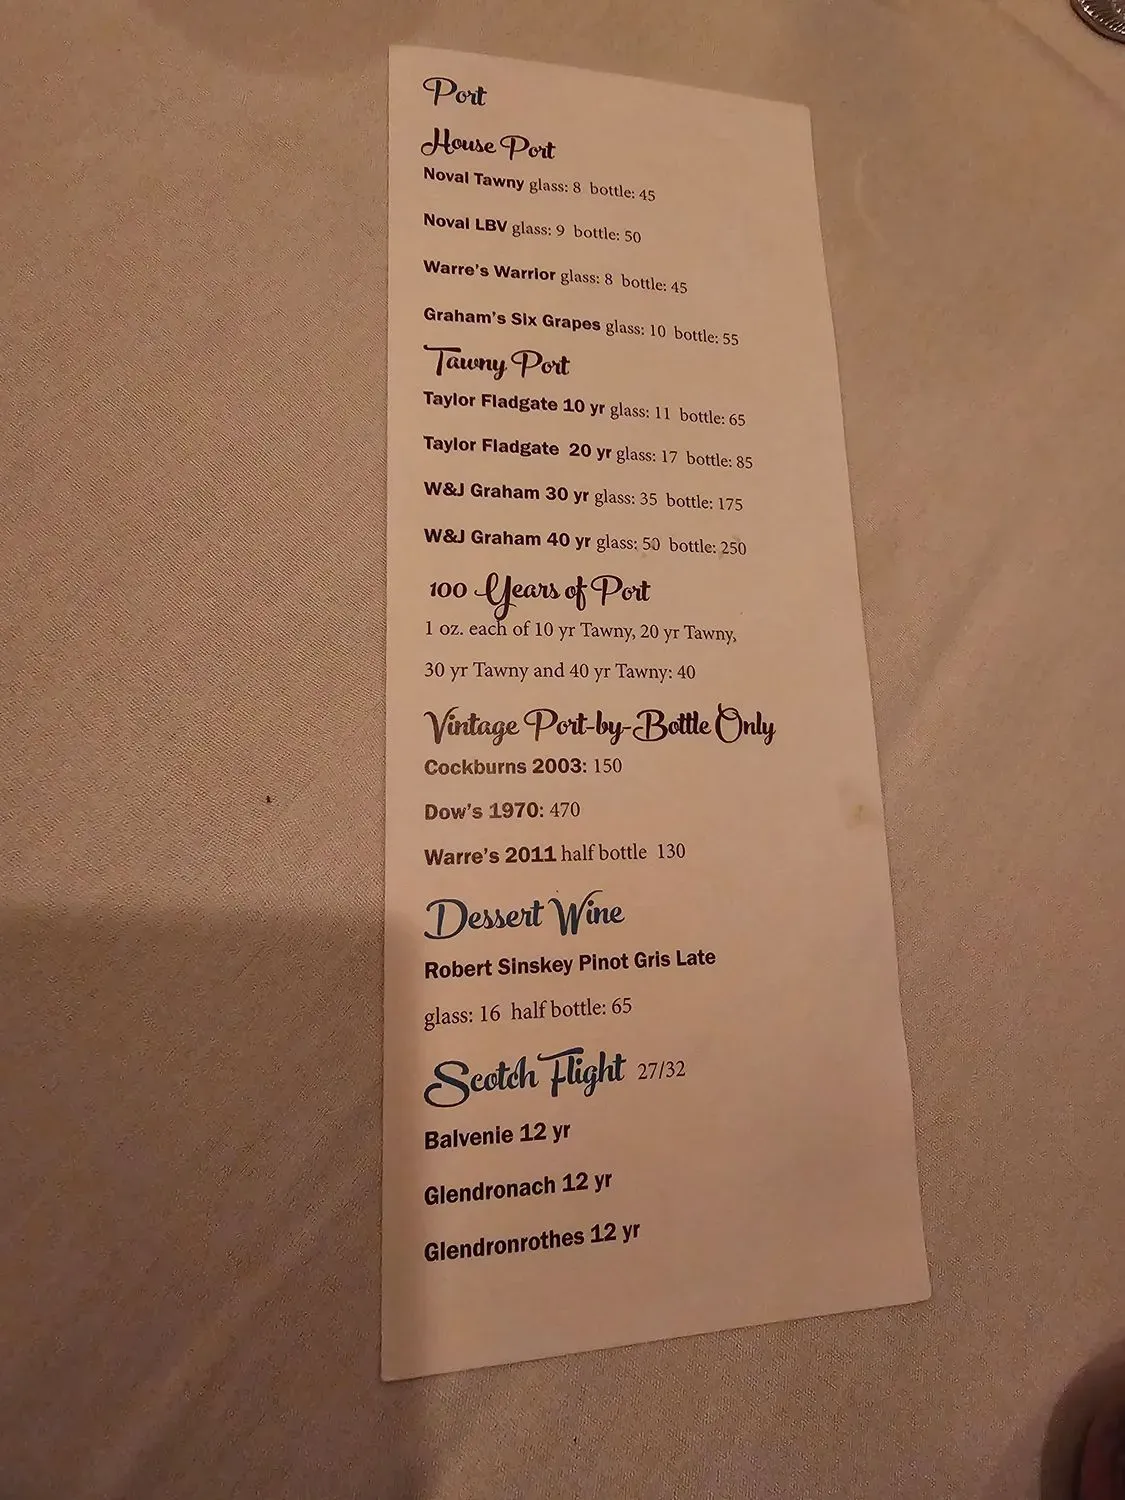 Port
House Port
Noval Tawny glass: 8 bottle: 45
Noval LBV glass: 9 bottle: 50
Warre's Warrior glass: 8 bottle: 45
Graham's Six Grapes glass: 10 bottle: 55
Tawny Port
Taylor Fladgate 10 yr glass: 11 bottle: 65
Taylor Fladgate 20 yr glass: 17 bottle: 85
W&J Graham 30 yr glass: 35 bottle: 175
W&J Graham 40 yr glass: 50 bottle: 250
100 Years of Port
1 oz. each of 10 yr Tawny, 20 yr Tawny,
30 yr Tawny and 40 yr Tawny: 40
Vintage Port-by-Bottle Only
Cockburns 2003: 150
Dow's 1970: 470
Warre's 2011 half bottle 130
Dessert Wine
Robert Sinskey Pinot Gris Late
glass: 16 half bottle: 65
Scotch Flight 27/32
Balvenie 12 yr
Glendronach 12 yr
Glendronrothes 12 yr